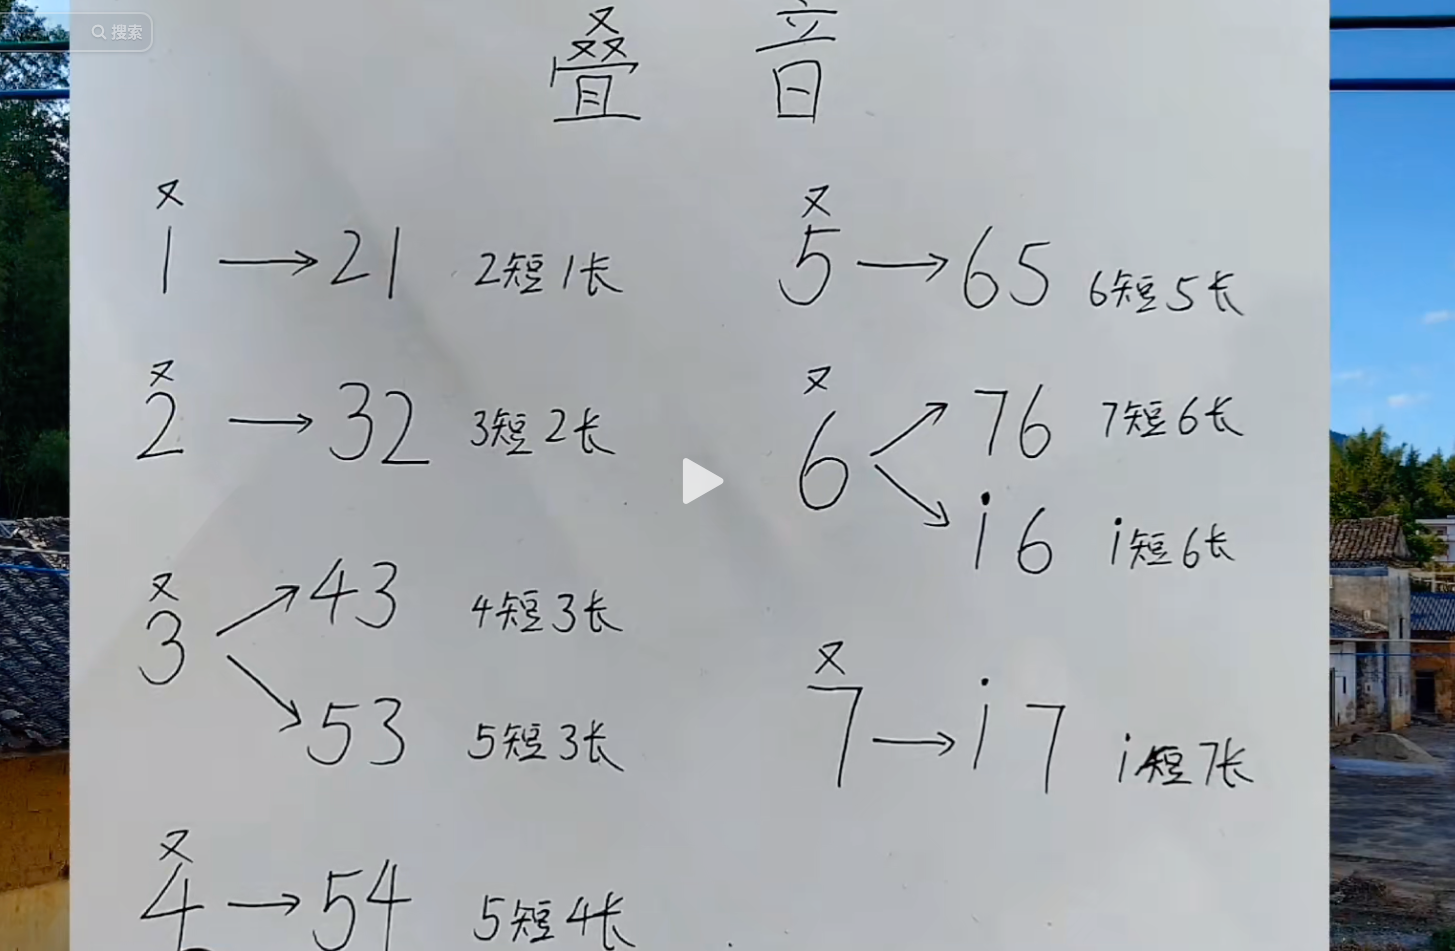 搜索
叠 音
又
1 → 21 2短1长
又
2 → 32 3短2长
又
3 → 43 4短3长
→ 53 5短3长
又
4 → 54 5短4长
又
5 → 65 6短5长
又
6 → 76 7短6长
→ i6 i短6长
又
7 → i7 i短7长